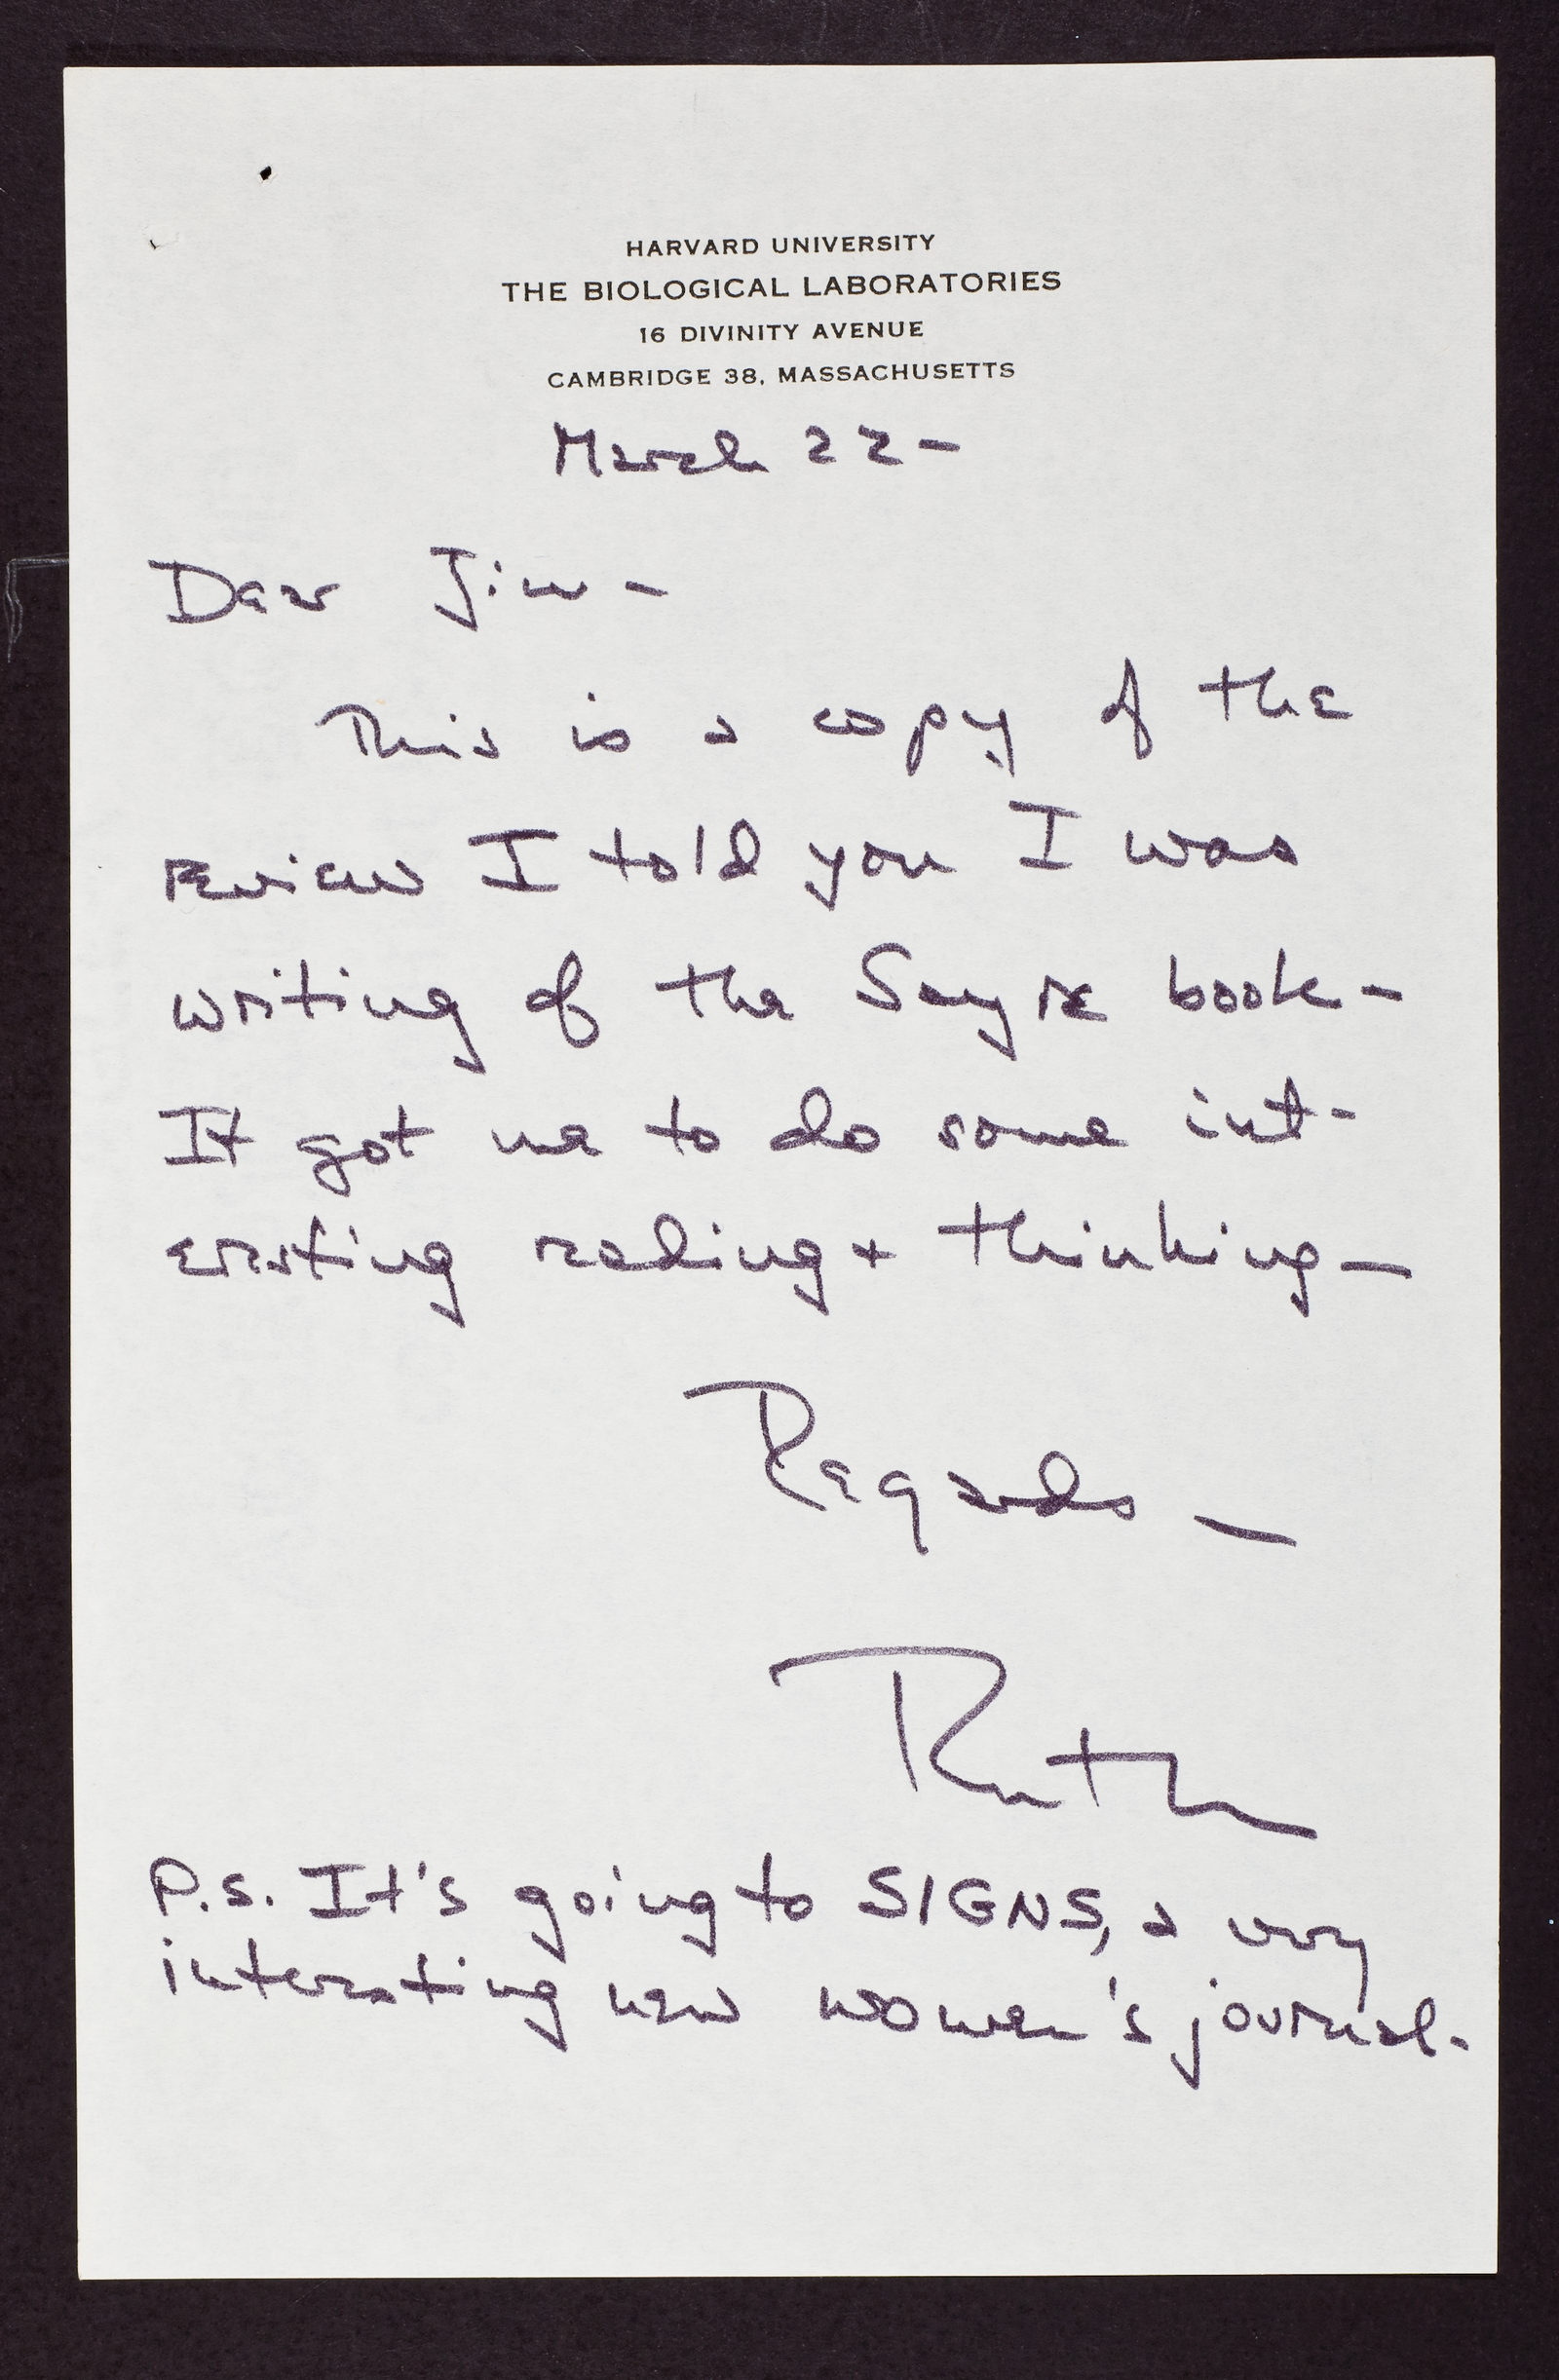 HARVARD UNIVERSITY
THE BIOLOGICAL LABORATORIES
16 DIVINITY AVENUE
CAMBRIDGE 38, MASSACHUSETTS
March 22-
Dear Jim -
This is a copy of the
review I told you I was
writing of the Sayre book-
It got me to do some int-
eresting reading + thinking-
Regards -
Ruth
P.S. It's going to SIGNS, a very
interesting new women's journal.